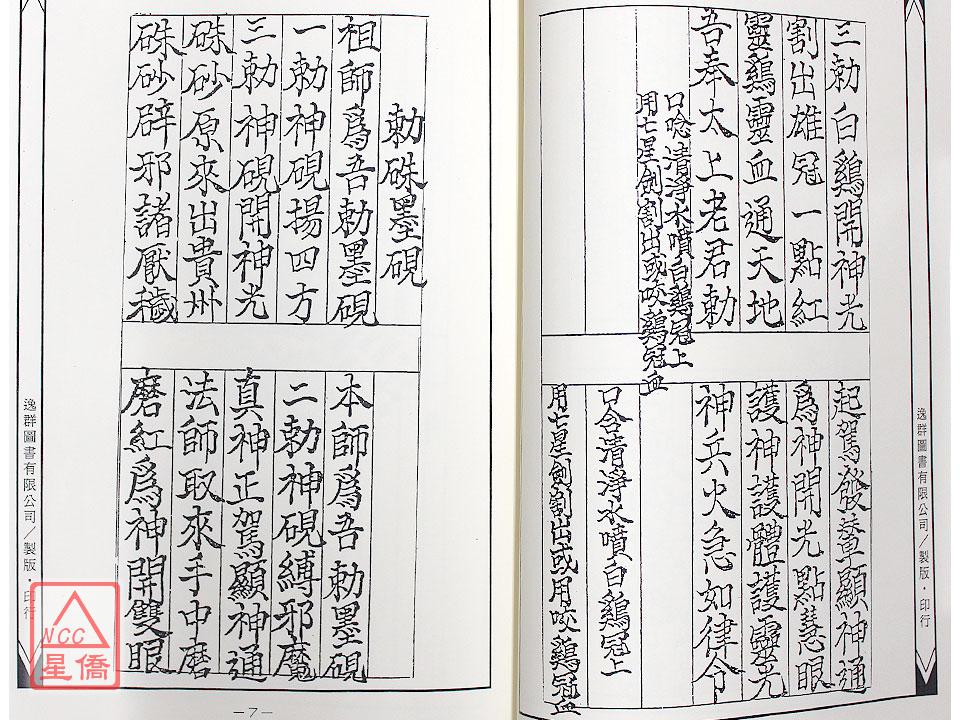 三勅白鷄開神光
起駕發輦顯神通
割出雄冠一點紅
爲神開光點慧眼
靈鷄靈血通天地
護神護體護靈光
吾奉太上老君勅
神兵火急如律令
口唸清淨水噴白鷄冠上
用七星劍割出或咬鷄冠血
口含清淨水噴白鷄冠上
用七星劍割出或用咬鷄冠血
逸群圖書有限公司/製版·印行
勅硃墨硯
祖師爲吾勅墨硯
本師爲吾勅墨硯
一勅神硯揚四方
二勅神硯縛邪魔
三勅神硯開神光
真神正駕顯神通
硃砂原來出貴州
法師取來手中磨
硃砂辟邪諸厭穢
磨紅爲神開雙眼
逸群圖書有限公司/製版·印行
—7—
NCC
星僑